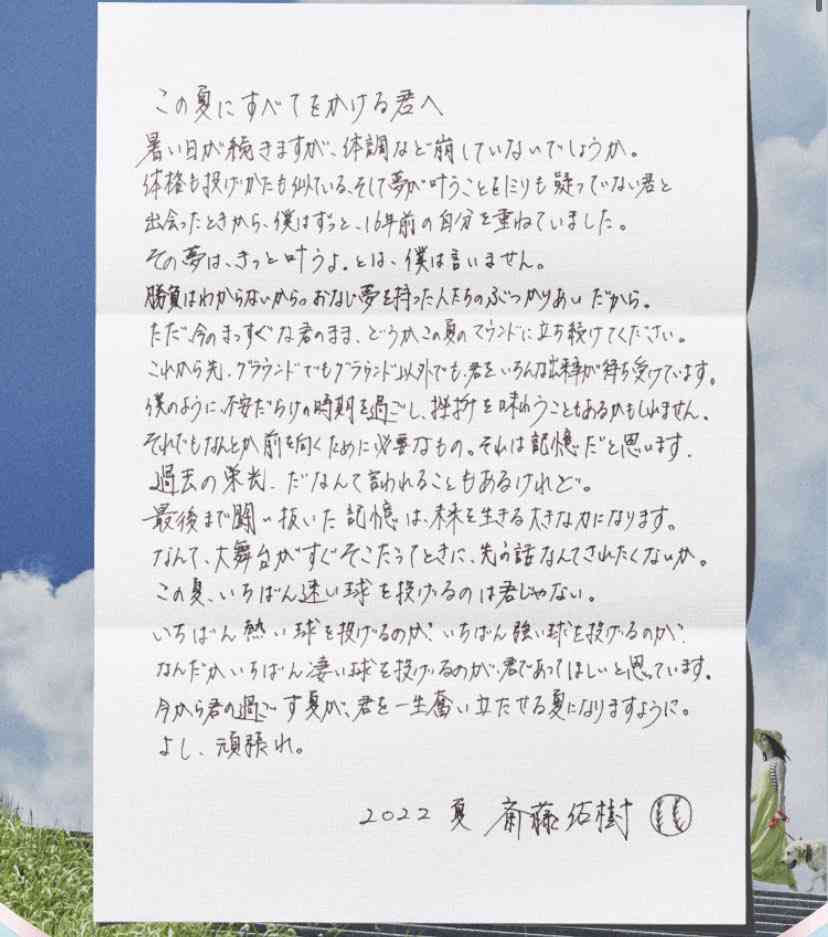 この夏にすべてをかける君へ
暑い日が続きますが、体調など崩していないでしょうか。
体格も投げかたも似ている、そして夢が叶うことをミリも疑っていない君と
出会ったときから、僕はずっと、16年前の自分を重ねていました。
その夢は、きっと叶うよ。とは、僕は言いません。
勝負はわからないから。おなじ夢を持った人たちのぶつかりあいだから。
ただ、今のまっすぐな君のまま、どうかこの夏のマウンドに立ち続けてください。
これから先、グラウンドでもグラウンド以外でも、君をいろんな出来事が待ち受けています。
僕のように、不安だらけの時期を過ごし、挫折を味わうこともあるかもしれません。
それでもなんとか前を向くために必要なもの。それは記憶だと思います。
過去の栄光、だなんて言われることもあるけれど。
最後まで闘い抜いた記憶は、未来を生きる大きな力になります。
なんて、大舞台がすぐそこだってときに、先の話なんてされたくないか。
この夏、いちばん速い球を投げるのは君じゃない。
いちばん熱い球を投げるのか？いちばん強い球を投げるのか？
なんだかいちばん凄い球を投げるのが、君であってほしいと思っています。
今から君の過ごす夏が、君を一生奮い立たせる夏になりますように。
よし、頑張れ。
2022 夏 斎藤佑樹